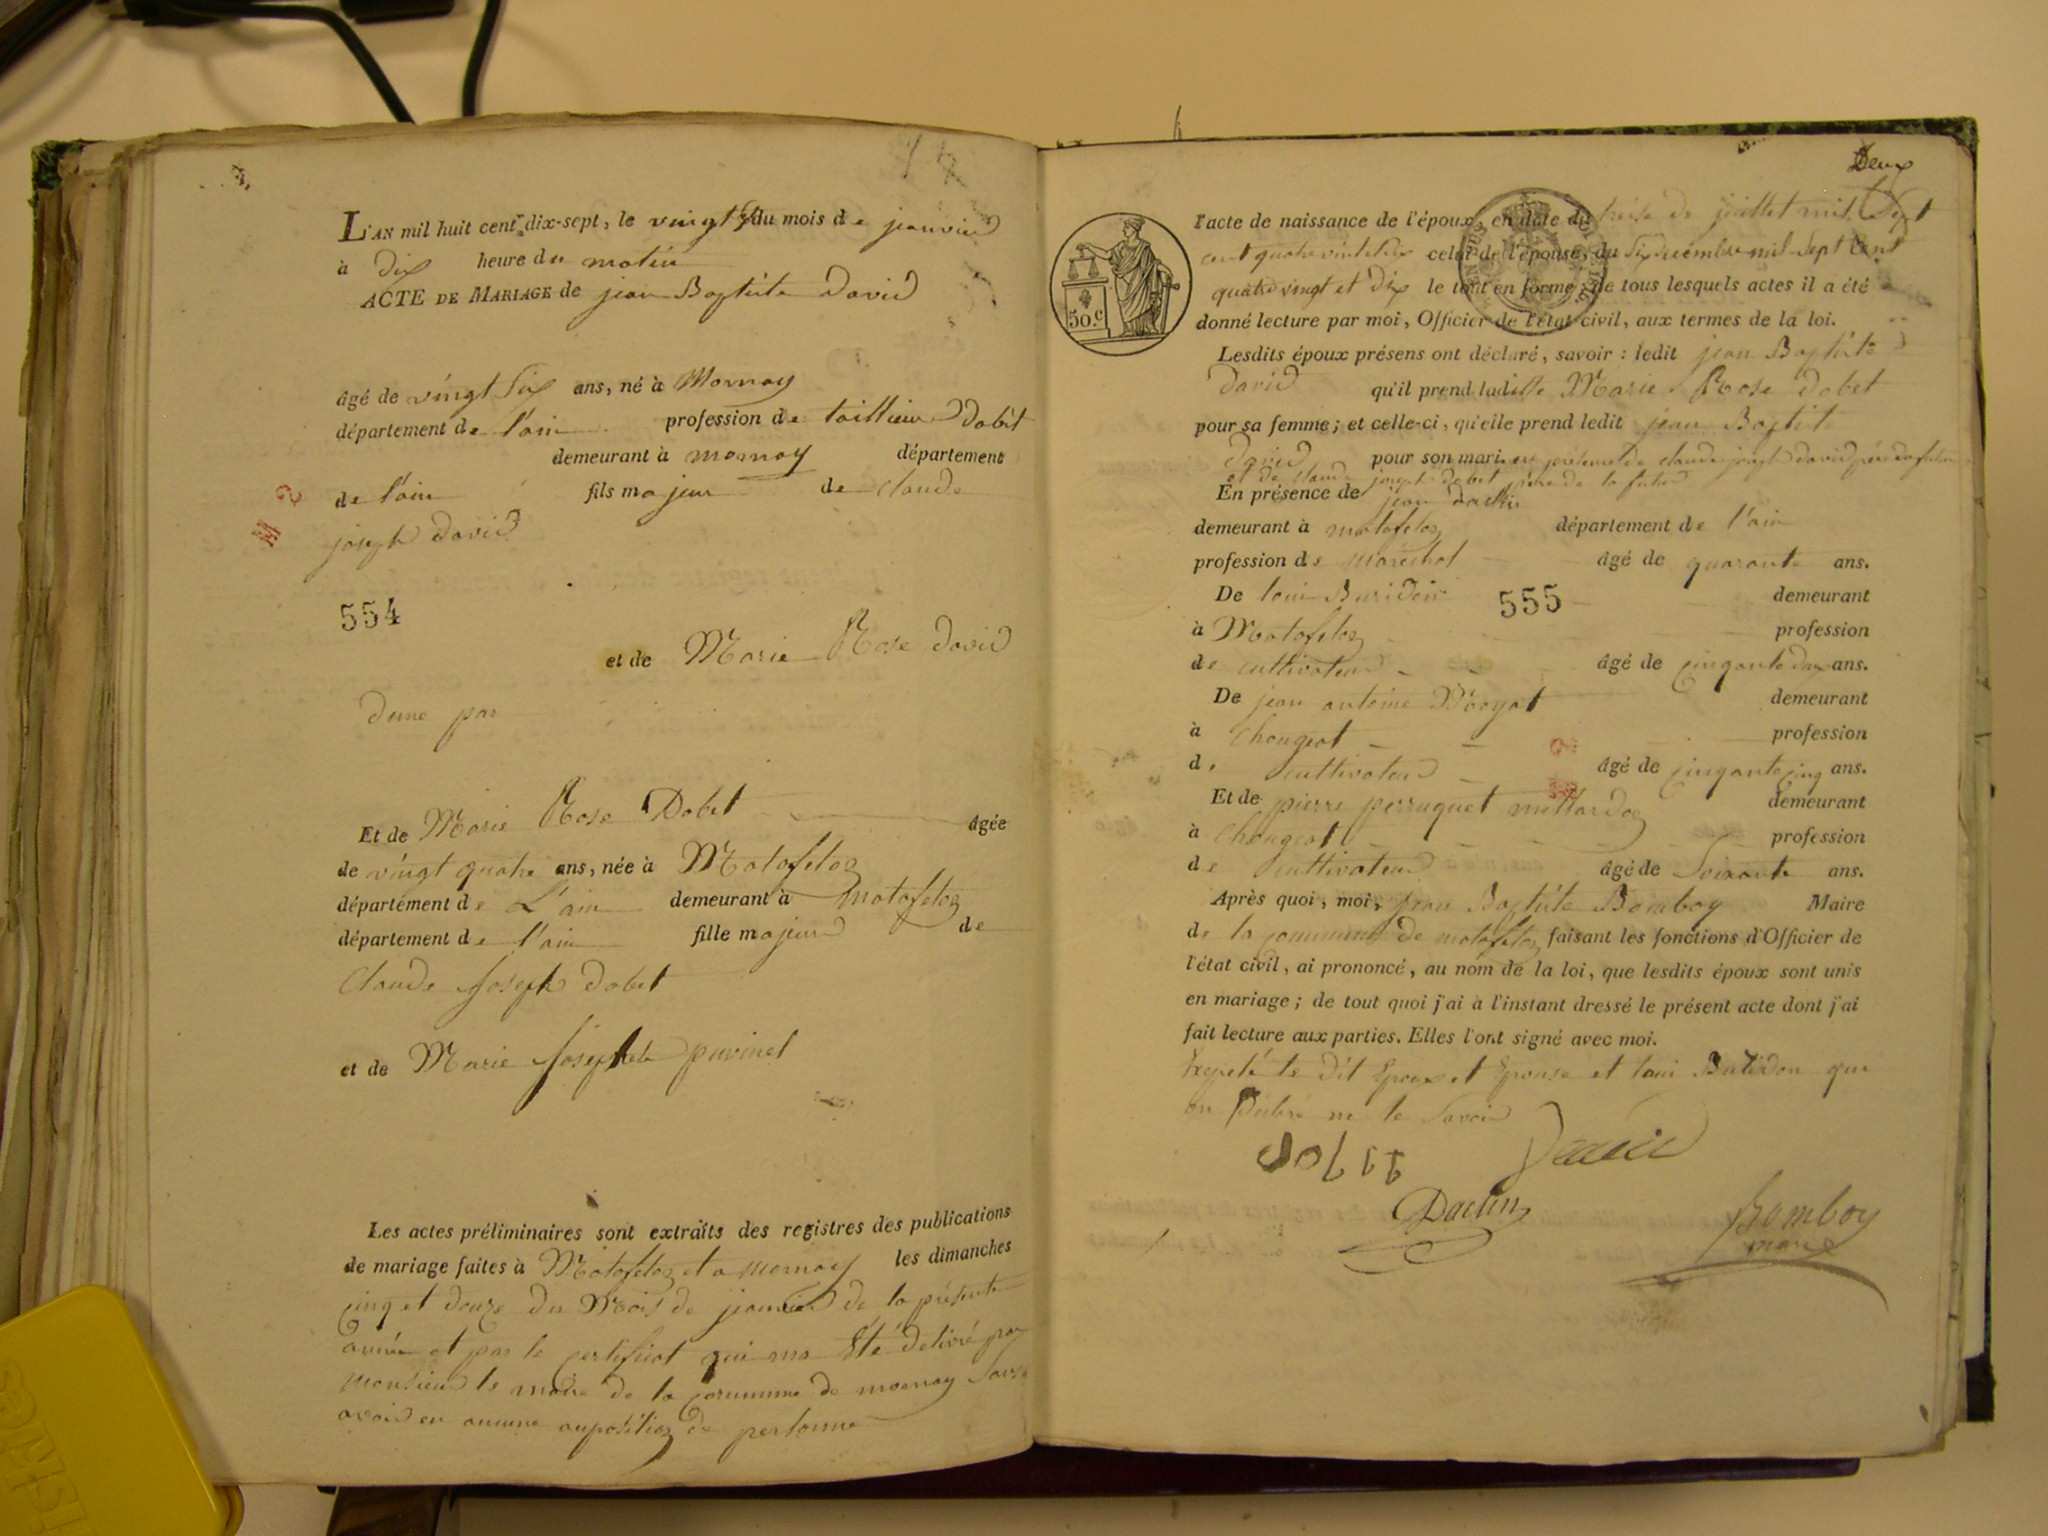 L'AN mil huit cent dix-sept, le vingt du mois de janvier
à dix heure du matin
ACTE DE MARIAGE de jean Baptiste david
âgé de vingt six ans, né à Mornay
département de l'ain profession de taillieur dabit
demeurant à mornay département
de l'ain fils majeur de claude
joseph david
554
et de Marie Rose david
dune par
Et de Marie Rose Dobet âgée
de vingt quatre ans, née à Matafeloz
département de L'ain demeurant à matafeloz
département de l'ain fille majeur de
Claude Joseph dobet
et de Marie Josephete puvinel
Les actes préliminaires sont extraits des registres des publications
de mariage faites à Matafeloz et a mornay les dimanches
cinq et douze du Mois de janvier de la présente
année et par le certificat qui ma été délivré par
monsieur le maire de la commune de mornay
avoir eu aucune de personne
Deux
l'acte de naissance de l'époux, en date du treize de juillet mil sept
cent quatre celui de l'épouse, du Six mil sept Cent
quatre vingt et dix le tout en forme; de tous lesquels actes il a été
donné lecture par moi, Officier de l'état civil, aux termes de la loi.
50.c
Lesdits époux présens ont déclaré, savoir : ledit jean Baptiste
david qu'il prend ladite Marie Rose dobet
pour sa femme; et celle-ci, qu'elle prend ledit jean Baptiste
david pour son mari. en présence de claude joseph david père du futur
et de claude joseph dobet père de la future
En présence de jean daclin
demeurant à matafeloz département de l'ain
profession de maréchal âgé de quarante ans.
De loui Buridon demeurant
555
à Matafeloz profession
de cultivateur âgé de cinqante deux ans.
De jean antoine Moyat demeurant
à Chougeat profession
de cultivateur âgé de cinqante cinq ans.
Et de pierre perruquet demeurant
à Chougeat profession
de cultivateur âgé de Soixante ans.
Après quoi, moi, jean Baptiste Bomboy Maire
de la commune de matafeloz faisant les fonctions d'Officier de
l'état civil, ai prononcé, au nom de la loi, que lesdits époux sont unis
en mariage; de tout quoi j'ai à l'instant dressé le présent acte dont j'ai
fait lecture aux parties. Elles l'ont signé avec moi.
le dit Epoux et Epouse et loui Buridon que
on ne le Savoir
David
Daclin
Bomboy
maire